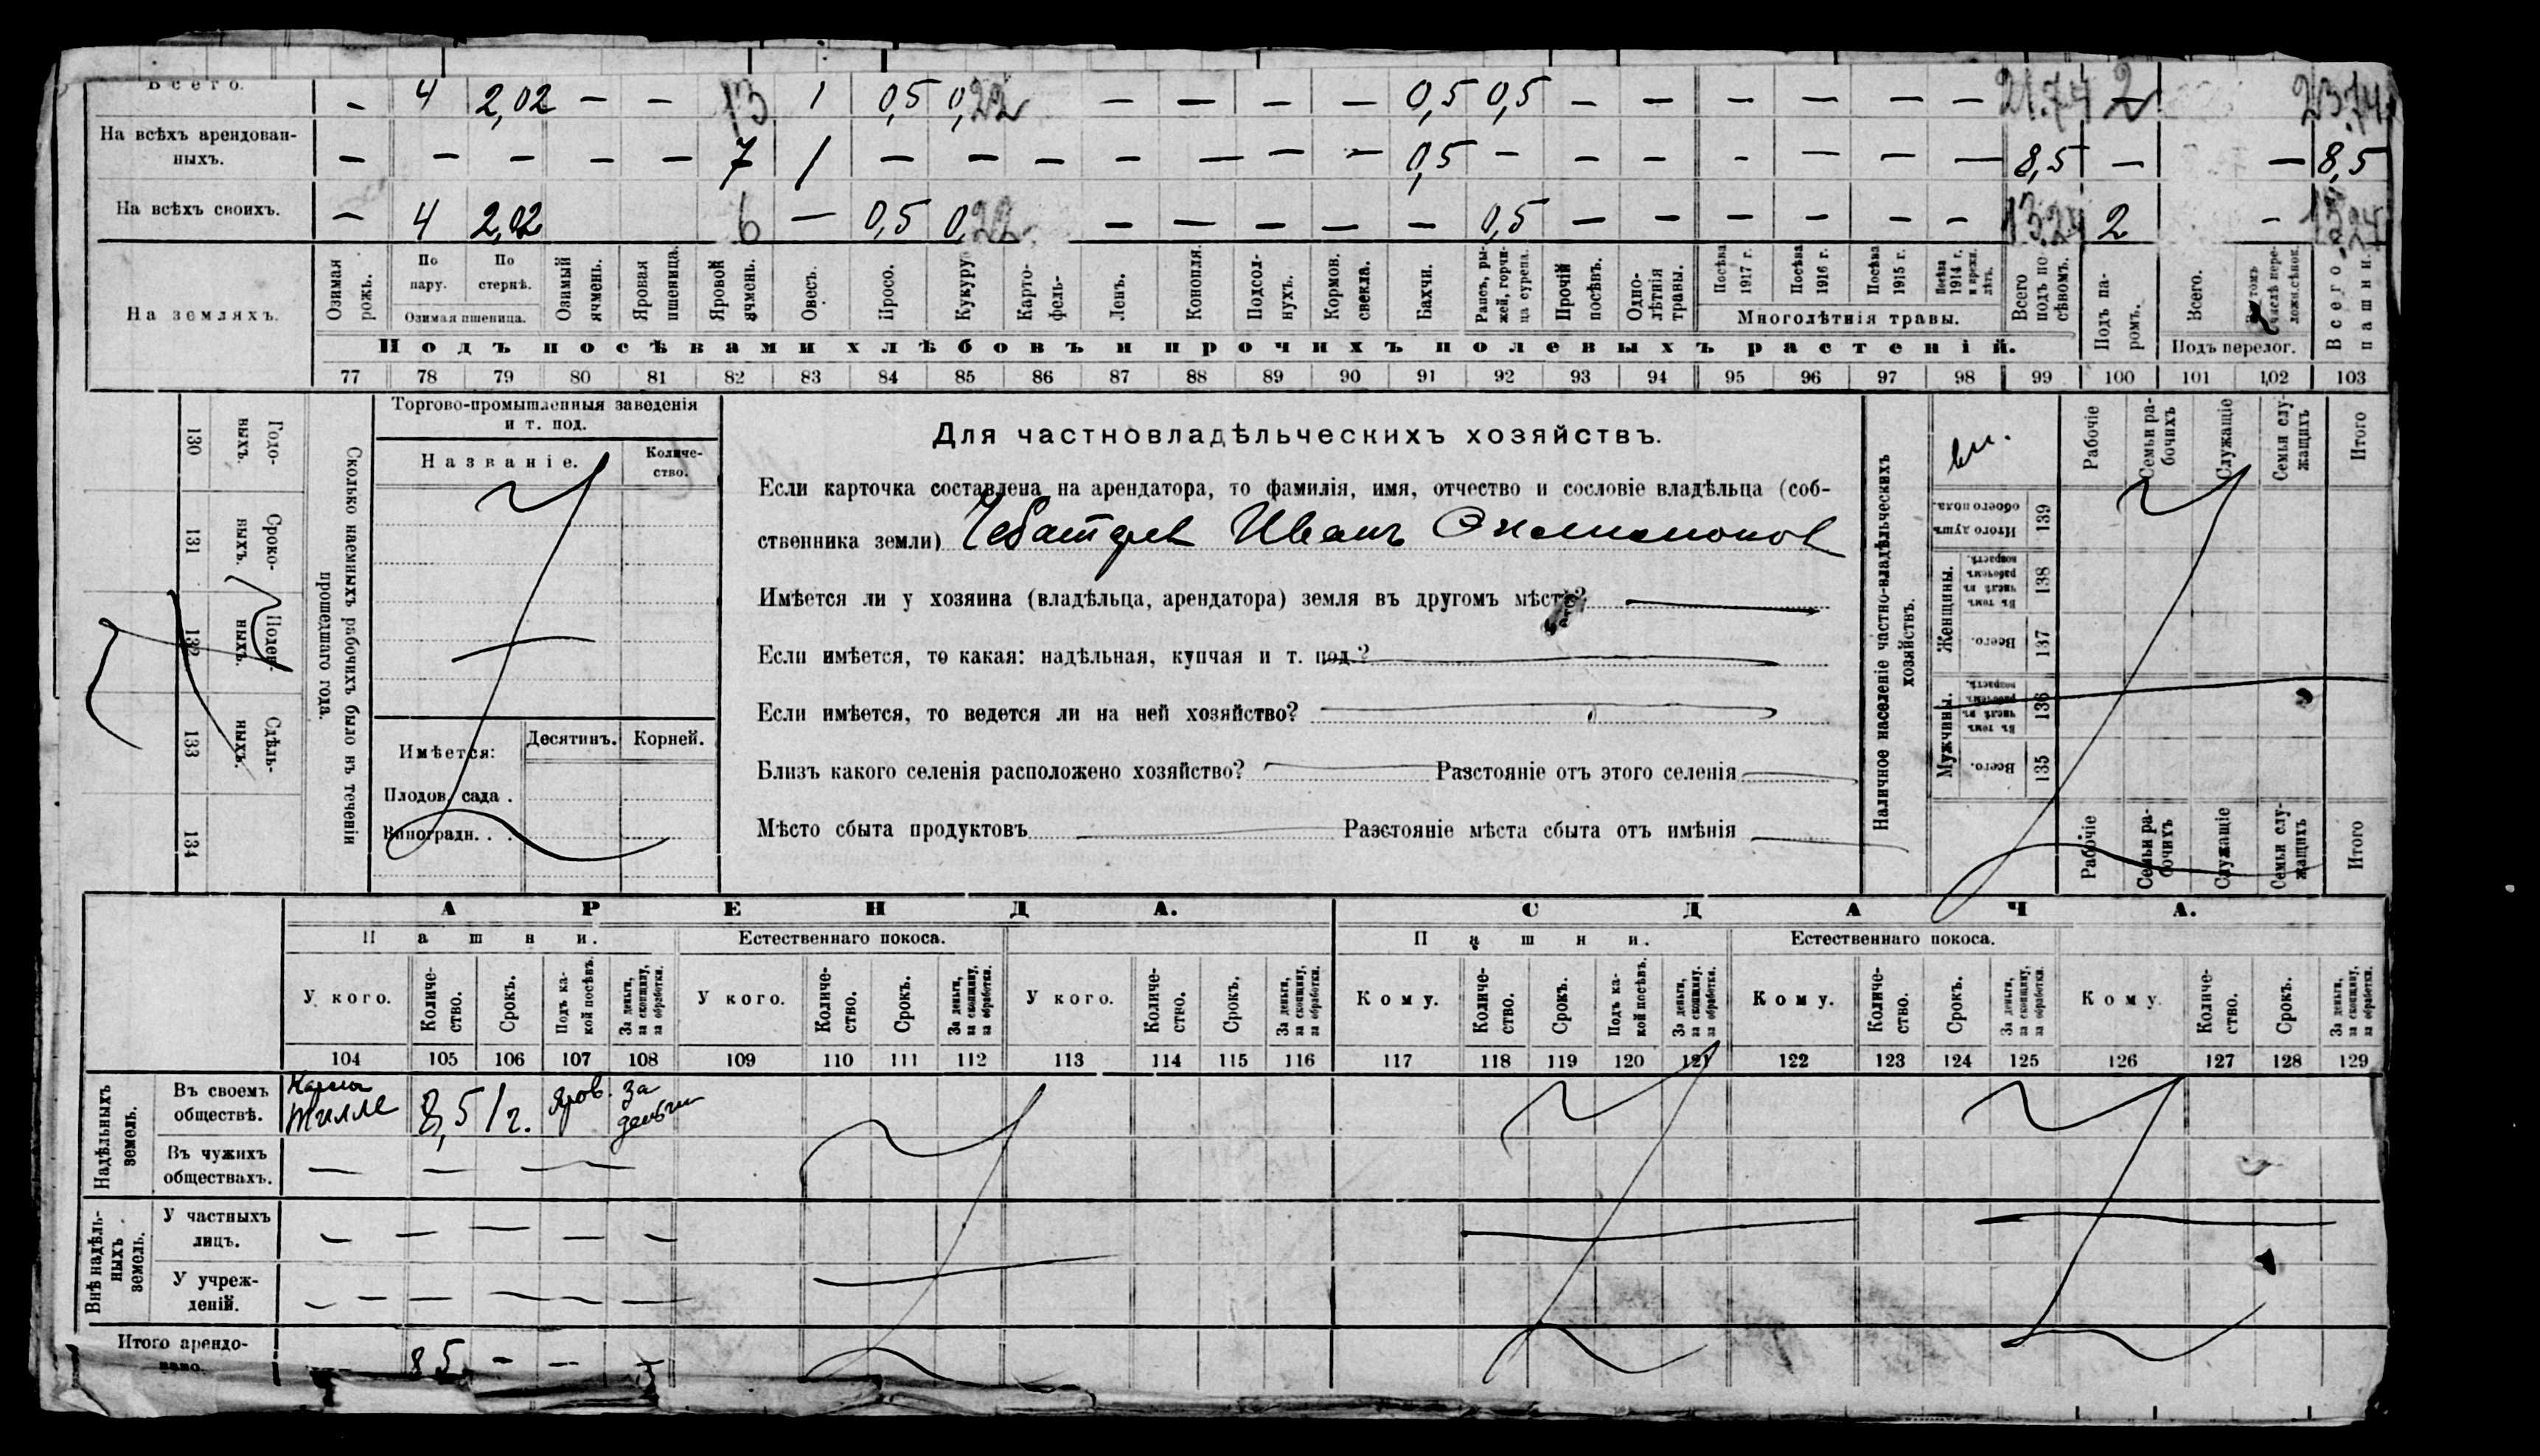 Всего. — 4 2,02 — — 13 1 0,5 0,22 — — — — 0,5 0,5 — — — — — — 21.74 2 23.74
На всѣхъ арендован-
ныхъ. — — — — — 7 1 — — — — — — — 0,5 — — — — — — — 8,5 — — 8,5
На всѣхъ своихъ. — 4 2,02 6 — 0,5 0,22 — — — — — 0,5 — — — — — — 13.24 2 —
На земляхъ.
Озимая рожь.
По пару.
По стернѣ.
Озимая пшеница.
Озимый ячмень.
Яровая пшеница.
Яровой ячмень.
Овесъ.
Просо.
Кукуру
Карто-
фель-
Ленъ.
Конопля.
Подсол-
нухъ.
Кормов.
свекла.
Бахчи.
Рапсъ, ры-
жей, горчи-
ца сурепа.
Прочій посѣвъ.
Одно-
лѣтнія травы.
Посѣва 1917 г.
Посѣва 1916 г.
Посѣва 1915 г.
Посѣва 1914 г.
Многолѣтнія травы.
Всего подъ по-
сѣвомъ.
Подъ па-
ромъ.
Всего.
числѣ пере-
Подъ перелог.
Всего пашни.
Подъ посѣвами хлѣбовъ и прочихъ полевыхъ растеній.
77 78 79 80 81 82 83 84 85 86 87 88 89 90 91 92 93 94 95 96 97 98 99 100 101 102 103
130 Годо-
выхъ.
131 Сроко-
выхъ.
132 Поден-
ныхъ.
133 Сдѣль-
ныхъ.
134
Сколько наемныхъ рабочихъ было въ теченіи
прошедшаго года.
Торгово-промышленныя заведенія
и т. под.
Названіе. Количе-
ство.
Имѣется: Десятинъ. Корней.
Плодов. сада .
Виноградн. . .
Для частновладѣльческихъ хозяйствъ.
Если карточка составлена на арендатора, то фамилія, имя, отчество и сословіе владѣльца (соб-
ственника земли) Иванъ
Имѣется ли у хозяина (владѣльца, арендатора) земля въ другомъ мѣстѣ? —
Если имѣется, то какая: надѣльная, купчая и т. под.? —
Если имѣется, то ведется ли на ней хозяйство? —
Близъ какого селенія расположено хозяйство? — Разстояніе отъ этого селенія —
Мѣсто сбыта продуктовъ — Разстояніе мѣста сбыта отъ имѣнія —
Наличное населеніе частно-владѣльческихъ
хозяйствъ.
Рабочіе
Семьи ра-
бочихъ
Служащіе
Семьи слу-
жащихъ
Итого
139 Итого душъ
обоего пола.
Женщины.
138 Въ томъ
числѣ въ
рабочемъ
возрастѣ.
137 Всего.
Мужчины.
136 Въ томъ
числѣ въ
рабочемъ
возрастѣ.
135 Всего.
Рабочіе
Семьи ра-
бочихъ
Служащіе
Семьи слу-
жащихъ
Итого
АРЕНДА. СДАЧА.
Пашни. Естественнаго покоса. Пашни. Естественнаго покоса.
У кого.
Количе-
ство.
Срокъ.
Подъ ка-
кой посѣвъ.
За деньги,
за скопщину,
за обработки.
У кого.
Количе-
ство.
Срокъ.
За деньги,
за скопщину,
за обработки.
У кого.
Количе-
ство.
Срокъ.
За деньги,
за скопщину,
за обработки.
Кому.
Количе-
ство.
Срокъ.
Подъ ка-
кой посѣвъ.
За деньги,
за скопщину,
за обработки.
Кому.
Количе-
ство.
Срокъ.
За деньги,
за скопщину,
за обработки.
Кому.
Количе-
ство.
Срокъ.
За деньги,
за скопщину,
за обработки.
104 105 106 107 108 109 110 111 112 113 114 115 116 117 118 119 120 121 122 123 124 125 126 127 128 129
Надѣльныхъ
земель.
Въ своемъ
обществѣ. 8,5 1 г. Яров. За
деньги
Въ чужихъ
обществахъ. — — —
Внѣ надѣль-
ныхъ
земель.
У частныхъ
лицъ. — — — — —
У учреж-
деній. — — — — —
Итого арендо-
вано. 8 5 — — —